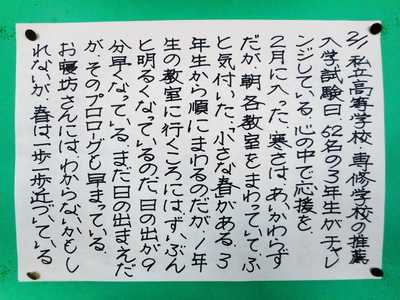 2/1 私立高等学校・専修学校の推薦
入学試験日。52名の3年生がチャレ
ンジしている。心の中で応援を。
2月に入った。寒さは、あいかわらず
だが、朝、各教室をまわっていて、ふ
と気付いた。「小さな春がある。」3
年生から順にまわるのだが、1年
生の教室に行くころには、ずいぶん
と明るくなっているのだ。日の出が9
分早くなっている。まだ日の出まえだ
が、そのプロローグも早まっている。
お寝坊さんには、わからないかもし
れないが、春は一歩一歩近づいている